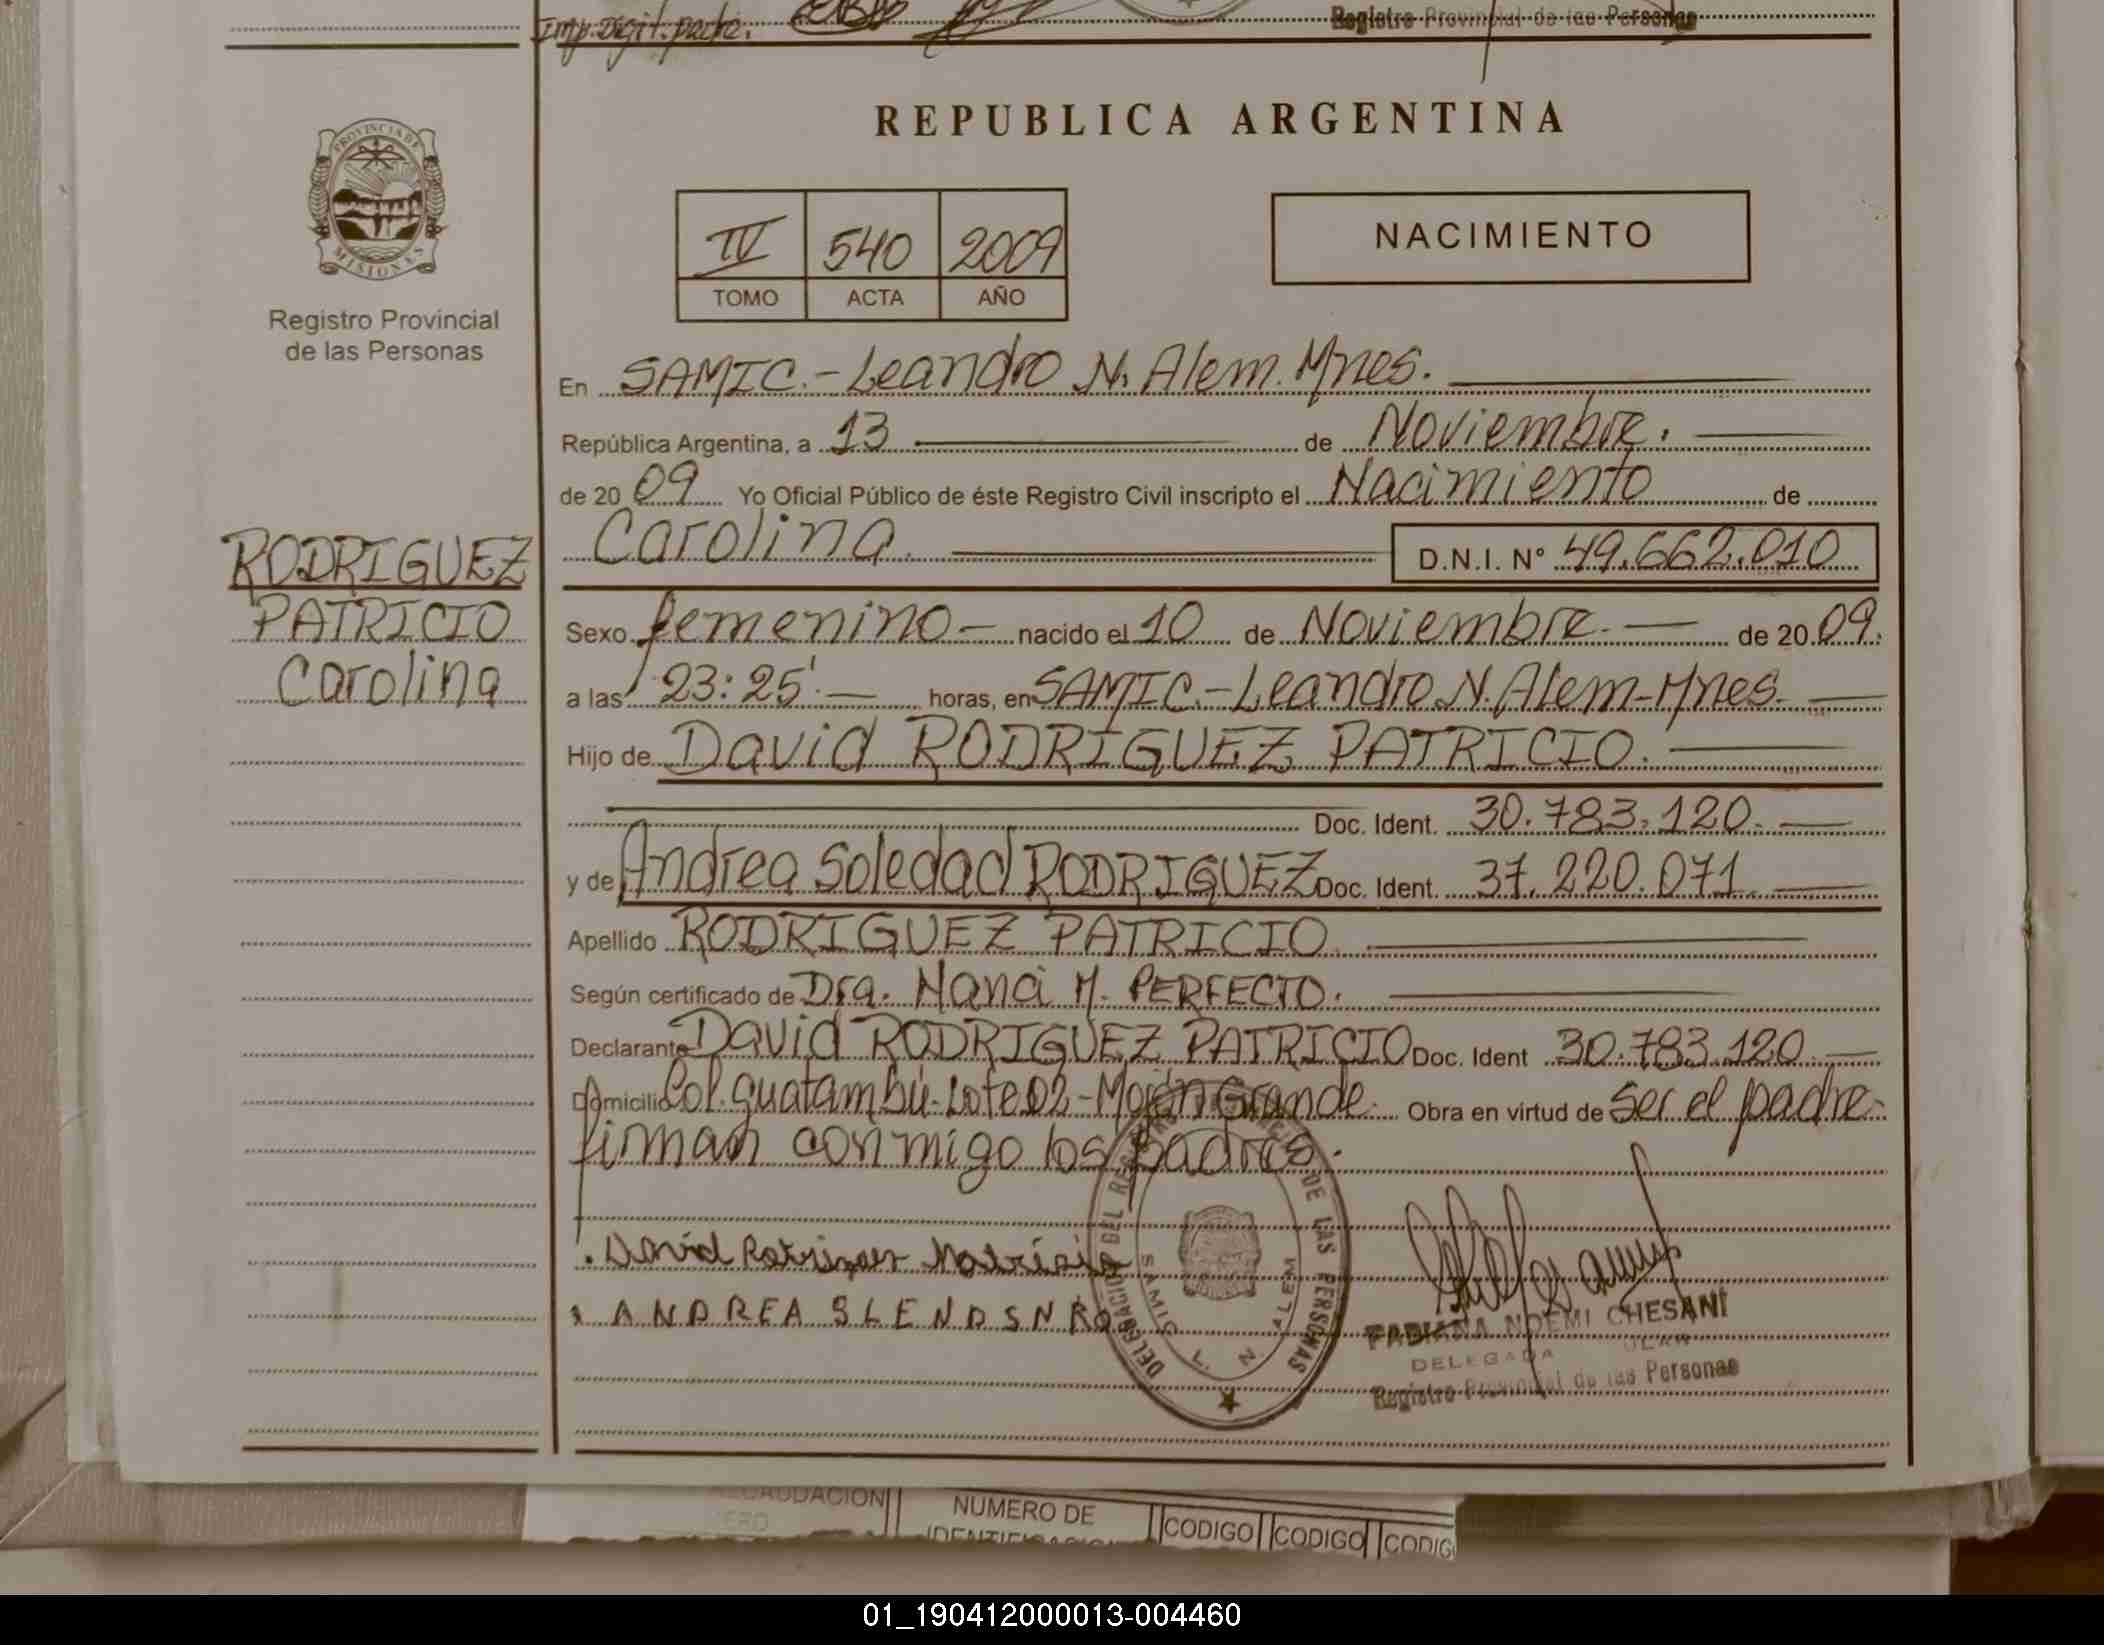 Imp. Digit. padre.
Registro Provincial de las Personas
PROVINCIA DE
MISIONES
Registro Provincial
de las Personas
REPUBLICA ARGENTINA
IV 540 2009
TOMO ACTA AÑO
NACIMIENTO
En SAMIC.- Leandro N. Alem. Mnes.
República Argentina, a 13 de Noviembre.
de 20 09 Yo Oficial Público de éste Registro Civil inscripto el Nacimiento de
Carolina. D.N.I. N° 49.662.010
RODRIGUEZ
PATRICIO
Carolina
Sexo femenino - nacido el 10 de Noviembre. de 20 09.
a las 23:25'. horas, en SAMIC.- Leandro N. Alem-Mnes.
Hijo de David RODRIGUEZ PATRICIO.
Doc. Ident. 30.783.120.
y de Andrea Soledad RODRIGUEZ Doc. Ident. 37.220.071
Apellido RODRIGUEZ PATRICIO
Según certificado de Dra. Nanci M. PERFECTO.
Declarante David RODRIGUEZ PATRICIO Doc. Ident 30.783.120
Domicilio Col. Guatambú-Lote 02-Mojón Grande. Obra en virtud de Ser el padre.
firman conmigo los padres.
ANDREA SLENDSNRO
DELEGACION DEL REGISTRO DE LAS PERSONAS
SAMIC L. N. ALEM
FABIANA NOEMI CHESANI
DELEGADA
Registro Provincial de las Personas
RECAUDACION
NUMERO DE
CODIGO CODIGO CODIG
01_190412000013-004460